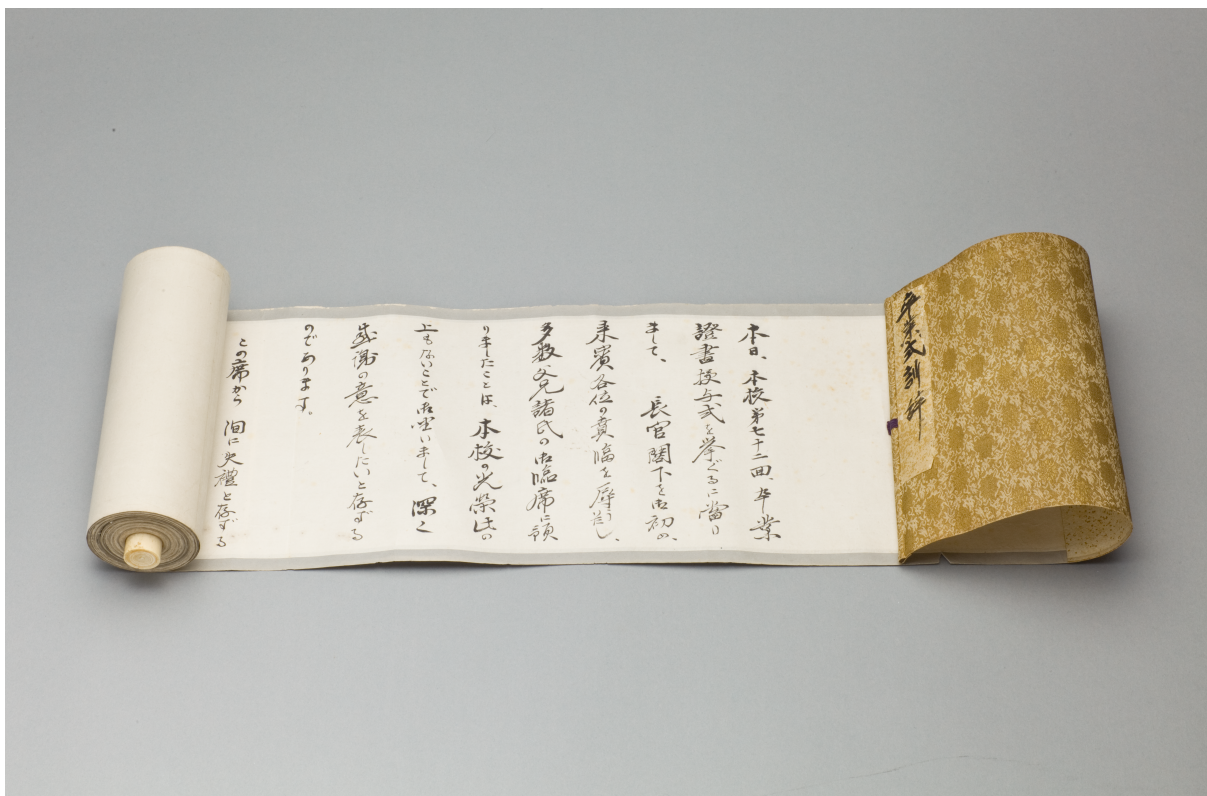 卒業式訓辞
本日、本校第七十二回、卒業
證書授与式を挙ぐるに當り
まして、長官閣下を御初め、
来賓各位の賁臨を辱うし、
多数父兄諸氏の御臨席を頂
りましたことは、本校の光榮此の
上もないことで御座いまして、深く
感謝の意を表したいと存ずる
のであります。
この席から 洵に失禮と存ずる